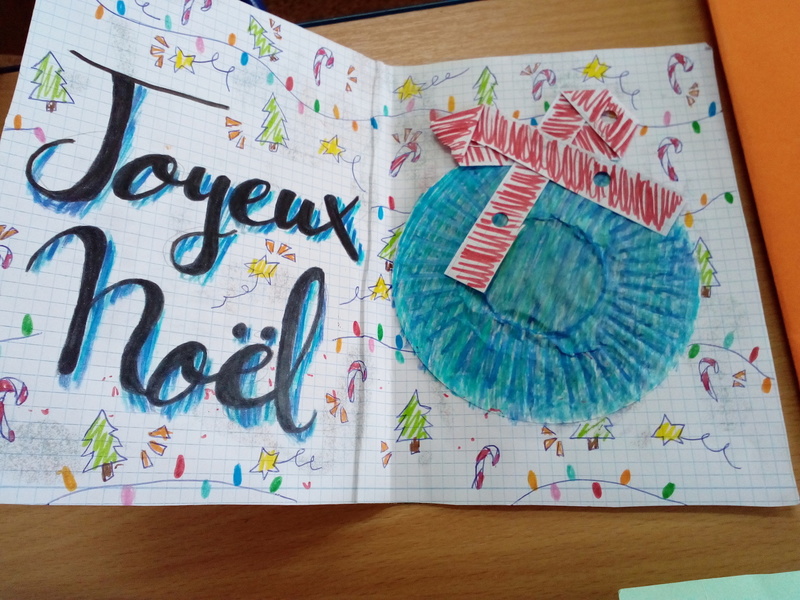 Joyeux
Noël